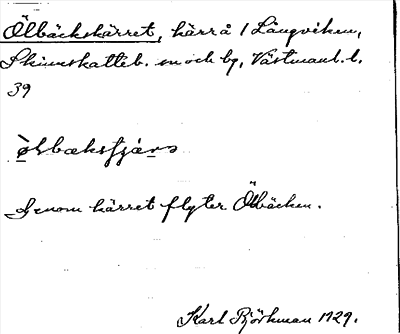 Ölbäckskärret, kärr å / Långviken,
Skinnskatteb. sn och bg, Västmanl. l.
39
ø̀lbæksçær
Genom kärret flyter Ölbäcken.
Karl Björkman 1929.